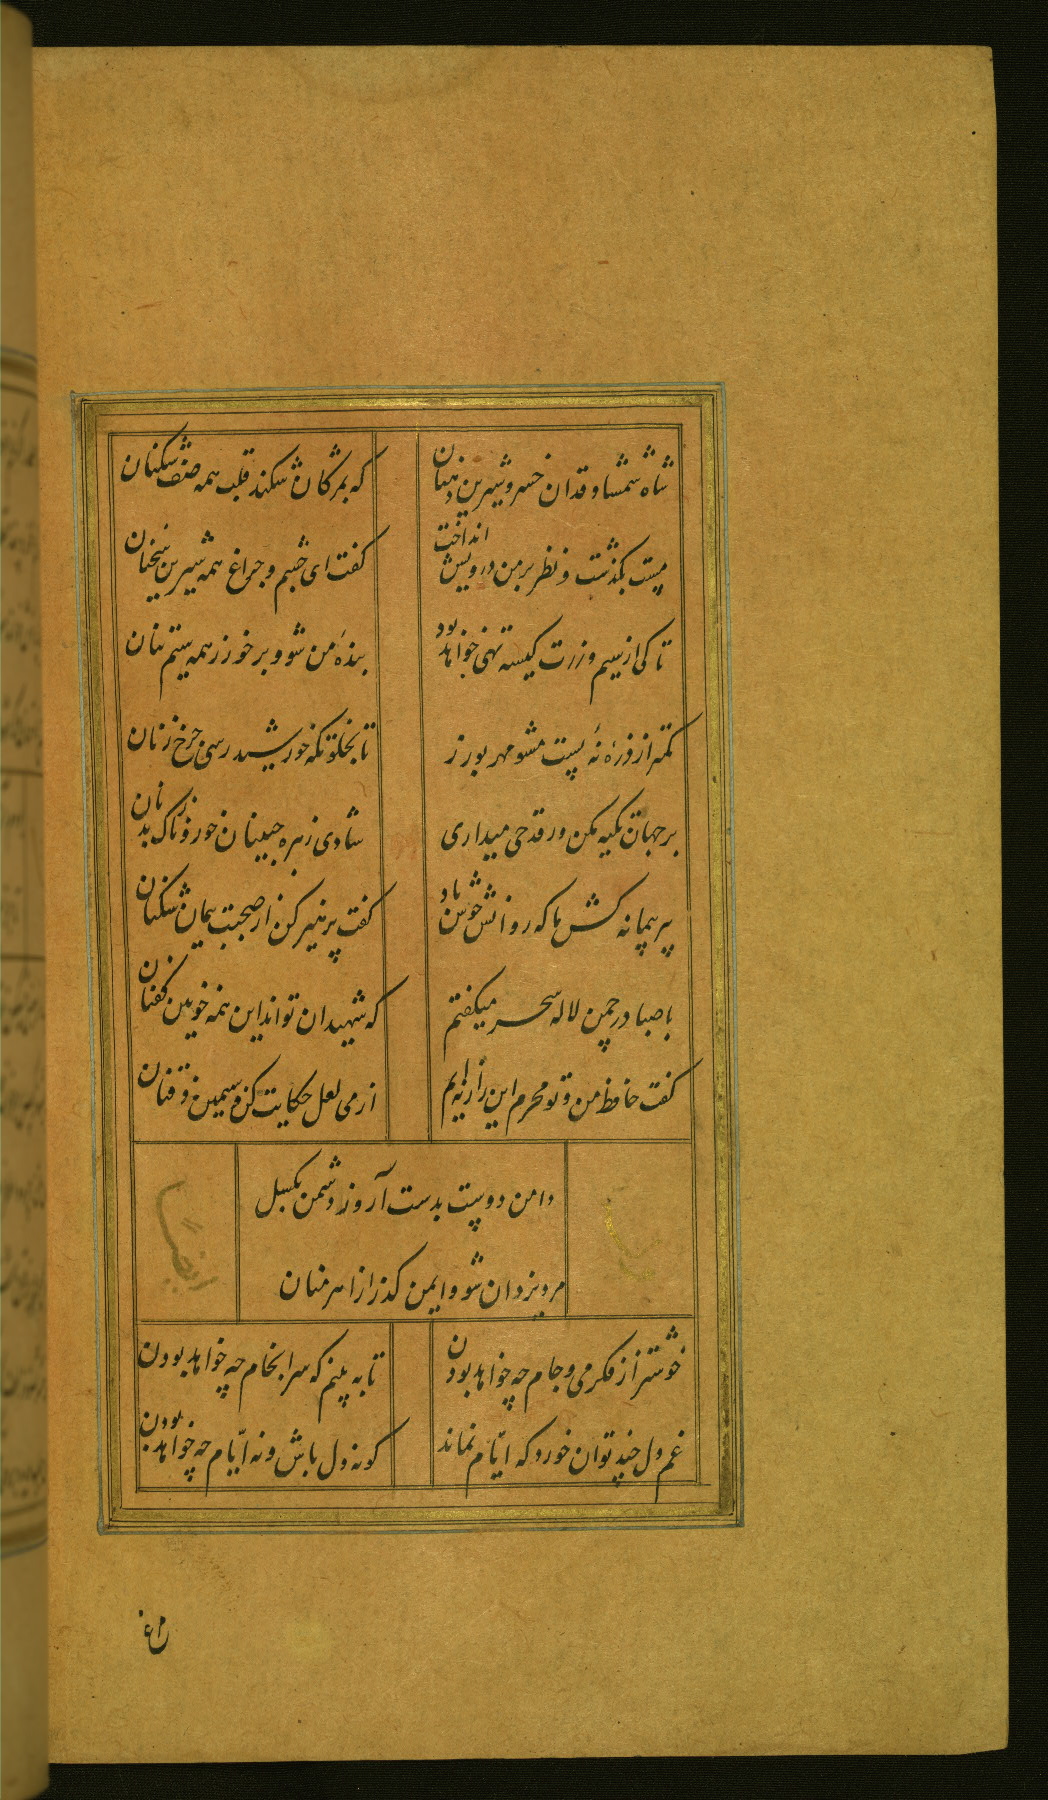 شاه شمشاد قدان خسرو شیرین دهنان که بمژگان شکند قلب همه صف شکنان
مست بگذشت و نظر بر من درویش انداخت گفت ای چشم و چراغ همه شیرین سخنان
تا کی از سیم و زرت کیسه تهی خواهد بود بندهٔ من شو و برخور ز همه سیم تنان
کمتر از ذره نهٔ پست مشو مهر بورز تا بخلوتگه خورشید رسی چرخ زنان
بر جهان تکیه مکن ور قدحی میداری شادی زهره جبینان خور و نازک بدنان
پیر پیمانه کش ما که روانش خوش باد گفت پرهیز کن از صحبت پیمان شکنان
با صبا در چمن لاله سحر میگفتم که شهیدان تو اند این همه خونین کفنان
گفت حافظ من و تو محرم این راز نه ایم از می لعل حکایت کن و سیمین ذقنان
دامن دوست بدست آر و ز دشمن بگسل
مرد یزدان شو و ایمن گذر از اهرمنان
ایضاً
خوشتر از فکر می و جام چه خواهد بودن تا به بینم که سرانجام چه خواهد بودن
غم دل چند توان خورد که ایّام نماند گو نه دل باش و نه ایّام چه خواهد بودن